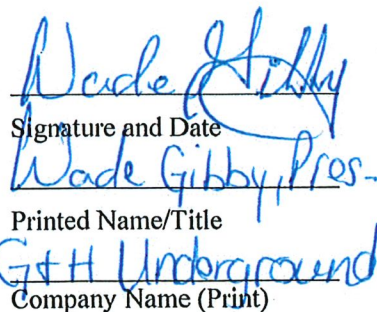 Wade Gibby
Signature and Date
Wade Gibby, Pres.
Printed Name/Title
G+H Underground
Company Name (Print)